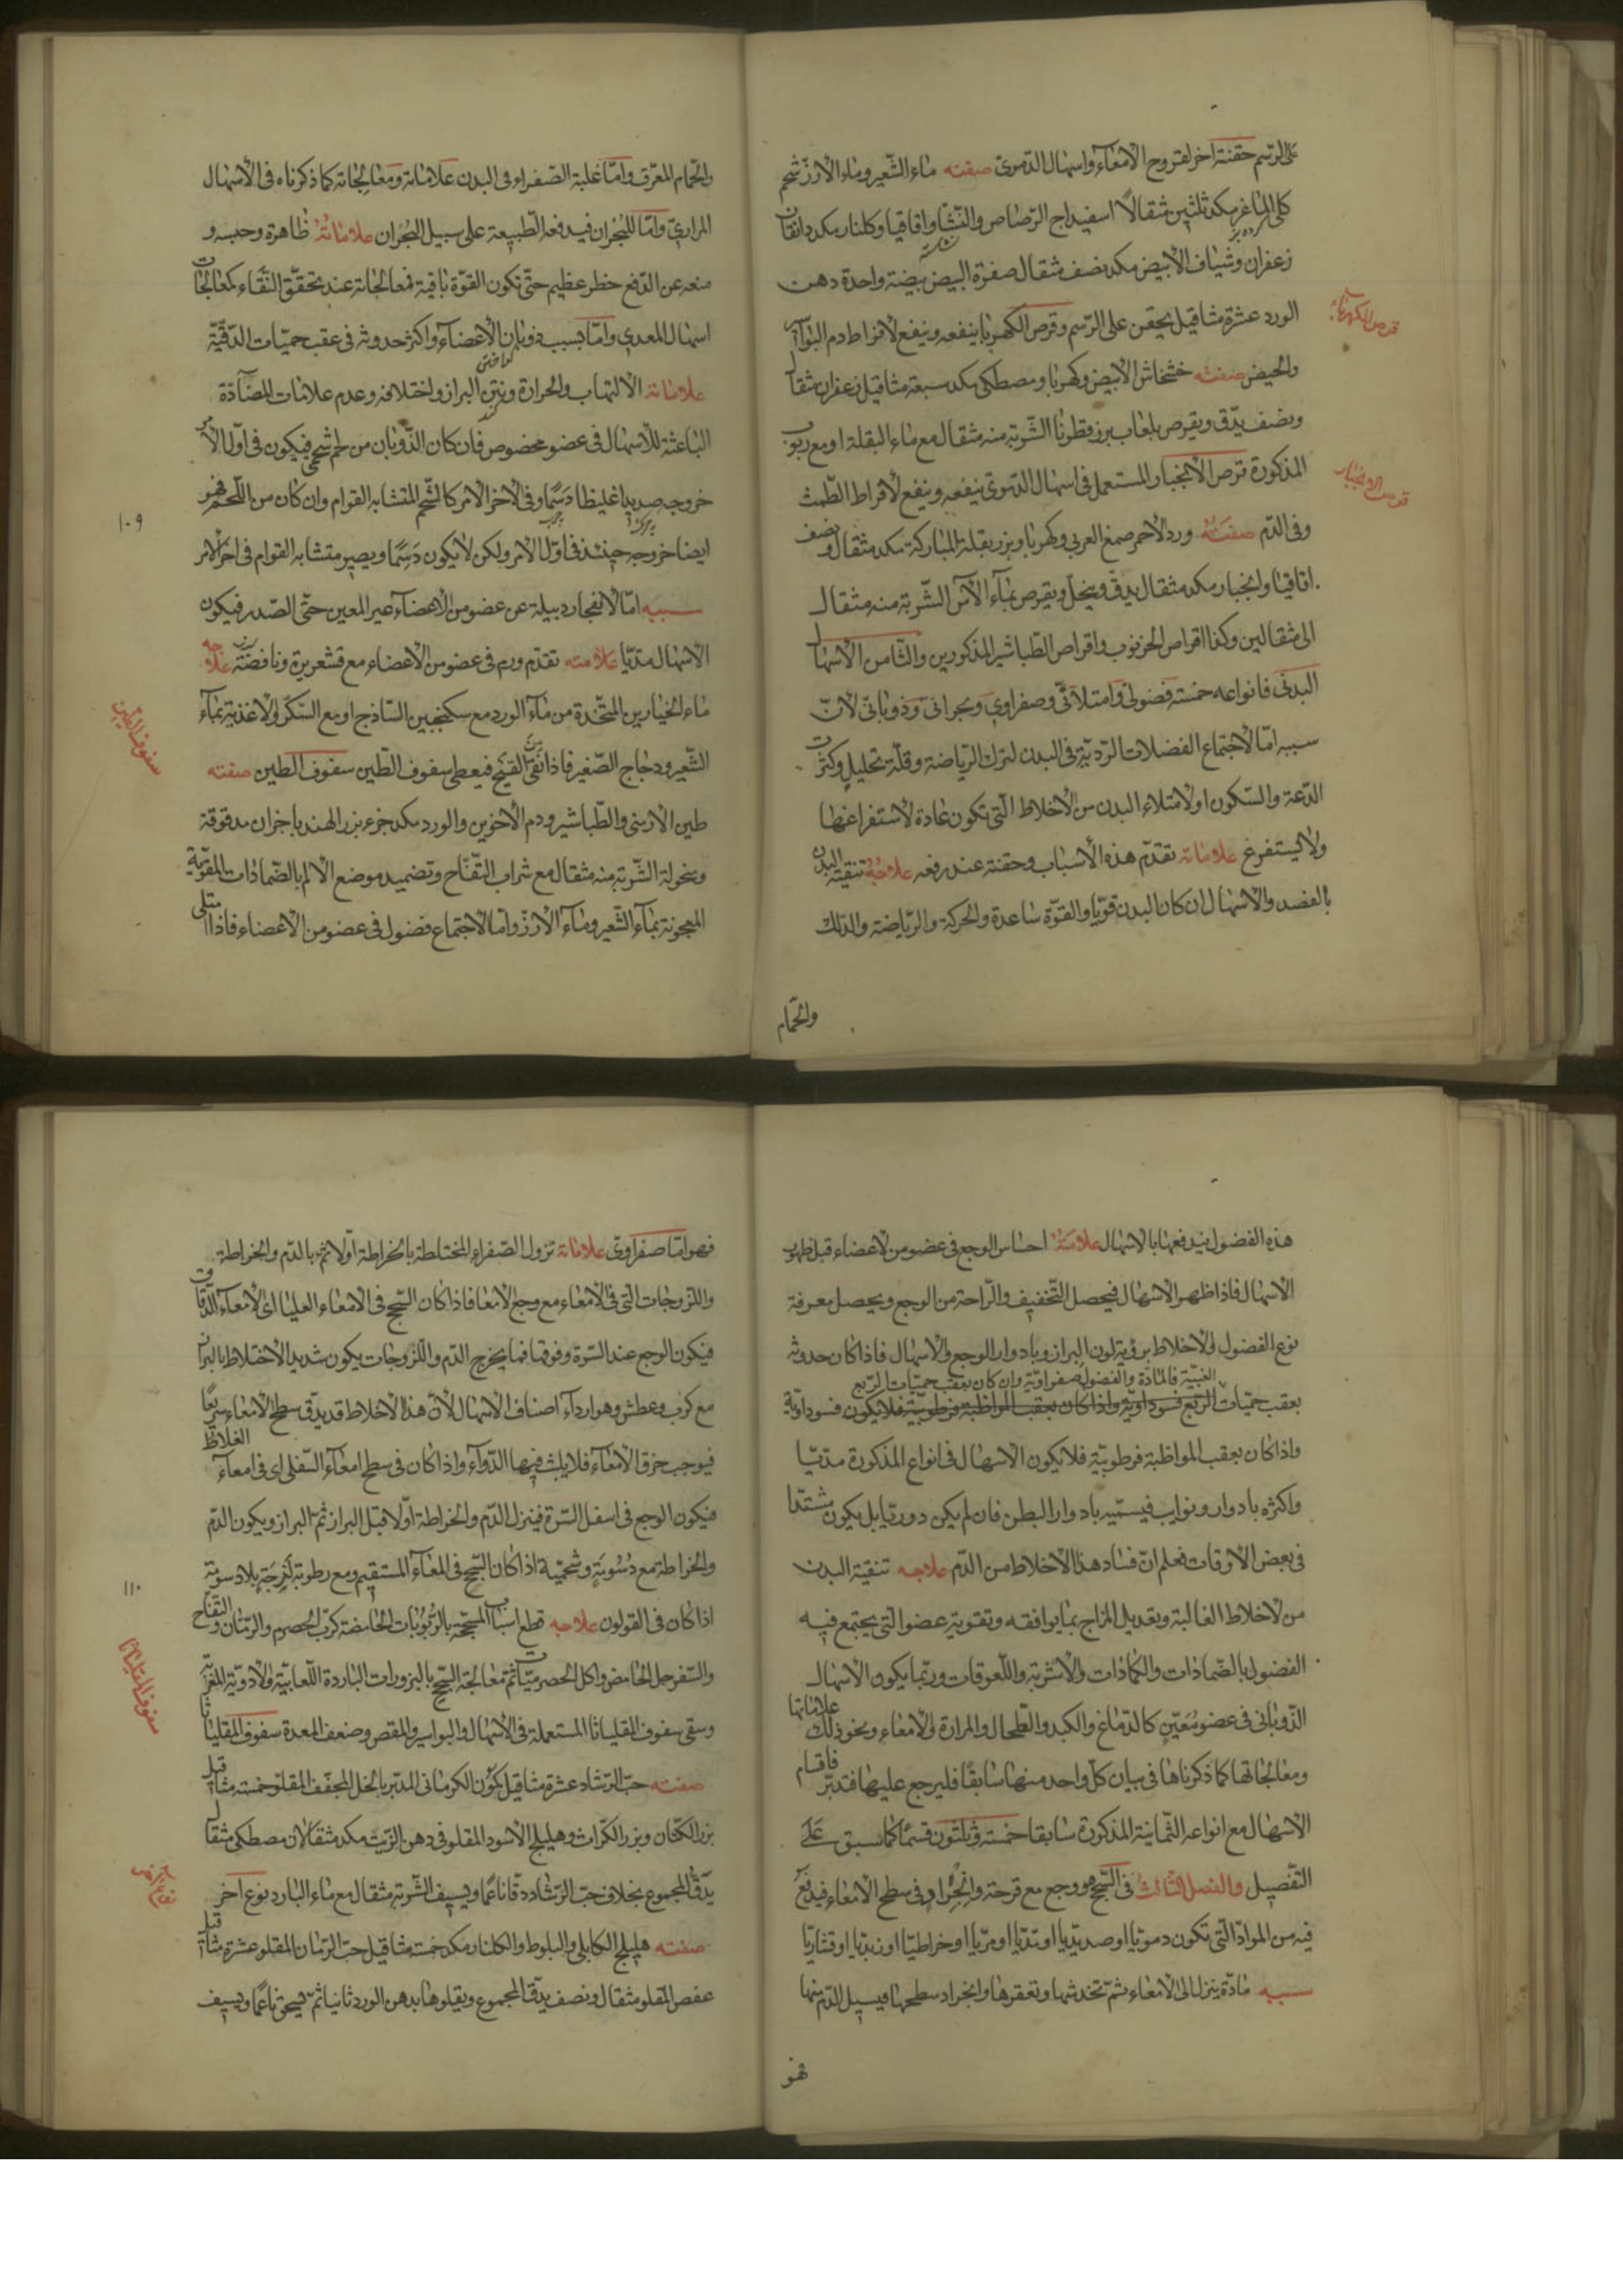 على الرسم حقنة اخر لقروح الامعاء واسهال الدموى صفته ماء الشعير وماء الأرز شحم
كلى الماغر مكد ثلثين مثقالاً اسفيداج الرصاص والنشا واقاقيا وكلنار مكد دانقان
زعفران وشياف الأبيض مكد نصف مثقال صفرة البيض بيضة واحدة دهن
الورد عشرة مثاقيل يحقن على الرسم وقرص الكهربا ينفعه وينفع لافراط دم البواسير
قرص الكهرباء
والحيض صفته خشخاش الأبيض وكهربا ومصطكى مكد سبعة مثاقيل زعفران مثقال
ونصف يدق ويقرص بلعاب بزر قطونا الشربة منه مثقال مع ماء البقلة او مع ربوب
المذكورة قرص الأنجبار المستعمل فى اسهال الدموى ينفعه وينفع لافراط الطمث
قرص الانجبار
وفى الدم صفته ورد الأحمر صمغ العربى وكهربا وبزر بقلة المباركة مكد مثقال ونصف
اقاقيا وانجبار مكد مثقال يدق وينخل ويقرص بماء الآس الشربة منه مثقال
الى مثقالين وكذا اقراص الخرنوب واقراص الطباشير المذكورين والثامن الاسهال
البدنى فانواعه خمسة فضولى وامتلائى وصفراوى وبحرانى وذوبانى لان
سببه اما لاجتماع الفضلات الردية فى البدن لترك الرياضة وقلة تحليل وكثرت
الدعة والسكون او لامتلاء البدن من الأخلاط التى تكون عادة لاستفراغها
ولا يستفرغ علاماته تقدم هذه الأسباب وحقنة عند رفعه علاجه تنقية البدن
بالفصد والاسهال ان كان البدن قويا والقوة ساعدة والحركة والرياضة والدلك
والحمام
والحمام المعرق واما غلبة الصفراء فى البدن علاماته ومعالجاته كما ذكرناه فى الأسهال
المرارى واما للبحران فيدفعه الطبيعة على سبيل البحران علاماته ظاهرة وحبسه و
منعه عن الدفع خطر عظيم حتى تكون القوة باقية فمعالجاته عند تحقق النقاء كمعالجات
اسهال المعدى واما بسبب ذوبان الأعضاء واكثر حدوثه فى عقب حميات الدقية
علاماته الالتهاب والحرارة ونتن البراز واختلافه وعدم علامات المضادة
الباعثة للأسهال فى عضو مخصوص فان كان الذوبان من لحم شحمى فيكون فى اول الأمر
خروجه صديدا غليظا دسما وفى الآخر الامر كالشحم المتشابه القوام وان كان من اللحم فهو
١٠٩
ايضا خروجه حينئذ فى اول الامر ولكن لا يكون دسما ويصير متشابه القوام فى اخر الامر
سببه اما لانفجار دبيلة عن عضو من الأعضاء غير المعين حتى الصدر فيكون
الاسهال مديا علامته تقدم ورم فى عضو من الأعضاء مع قشعريرة ونافضة علاجه
ماء الخيارين المتخذة من ماء الورد مع سكنجبين الساذج او مع السكر والاغذية بماء
سفوف الطين
الشعير ودجاج الصغير فاذا نقى القيح فيعطى سفوف الطين سفوف الطين صفته
طين الارمنى والطباشير ودم الأخوين والورد مكد جزء بزر الهندبا جزان مدقوقة
ومنخولة الشربة منه مثقال مع شراب التفاح وتضميد موضع الالم بالضمادات المقوية
المعجونة بماء الشعير وماء الأرز واما لاجتماع فضول فى عضو من الأعضاء فاذا امتلى
هذه الفضول فيندفعها بالاسهال علامته احساس الوجع فى عضو من الاعضاء قبل ظهور
الاسهال فاذا ظهر الاسهال فيحصل التخفيف والراحة من الوجع ويحصل معرفة
نوع الفضول والاخلاط برؤية لون البراز وبادوار الوجع والاسهال فاذا كان حدوثه
الغبية فالمادة والفضول صفراوية وان كان بعقب حميات الربع
بعقب حميات الربع فسوداوية واذا كان بعقب المواظبة فرطوبية فلا يكون فسوداوية
واذا كان بعقب المواظبة فرطوبية فلا يكون الاسهال فى انواع المذكورة مديا
واكثره بادوار ونوايب فيسميه بادوار البطن فان لم يكن دوريا بل يكون مشتدا
فى بعض الاوقات فعلم ان فساد هذا الأخلاط من الدم علاجه تنقية البدن
من لاخلاط الغالبة وتعديل المزاج بما يوافقه وتقوية عضو التى يجتمع فيه
الفضول بالضمادات والكمادات والاشربة واللعوقات وربما يكون الاسهال
الذوبانى فى عضو معين كالدماغ والكبد والطحال والمرارة والامعاء ونحو ذلك علاماتها
ومعالجاتها كما ذكرناها فى بيان كل واحد منها سابقا فليرجع عليها فتدبر فاقسام
الاسهال مع انواعه الثمانية المذكورة سابقا خمسة وثلثون قسما كما سبق على
التفصيل والفصل الثالث فى السحج هو وجع مع قرحة وانجراد فى سطح الامعاء فيدفع
فيه من المواد التى تكون دمويا او صديديا او مديا او مريا او خراطيا او زبديا او قشاريا
سببه مادة ينزل الى الامعاء ثم تخدشها وتعقرها وانجراد سطحها فيسيل الدم منها
فهو
فهو اما صفراوى علاماته نزول الصفراء المختلطة بالخراطة اولا ثم بالدم والخراطة
واللزوجات التى فى الأمعاء مع وجع الامعا فاذا كان السحج فى الامعاء العليا اى الأمعاء الدقاق
فيكون الوجع عند السرة وفوقها فما يخرج الدم واللزوجات يكون شديد الأختلاط بالبراز
مع كرب وعطش وهو اردأ اصناف الاسهال لأن هذا الأخلاط قد يدق سطح الأمعاء سريعا
فيوجب خرق الامعاء فلا يلبث فيها الدواء واذا كان فى سطح امعاء السفلى اى فى امعاء الغلاظ
فيكون الوجع فى اسفل السرة فينزل الدم والخراطة اولا قبل البراز ثم البراز ويكون الدم
والخراطة مع دسومة وشحمية اذا كان السحج فى المعاء المستقيم ومع رطوبة لزجة بلا دسومة
١١٠
اذا كان فى القولون علاجه قطع اسباب المسحجة بالربوبات الحامضة كرب الحصرم والرمان والتفاح
والسفرجل الحامض واكل الحصرميات ثم معالجة السحج بالبزورات الباردة اللعابية والأدوية المغرية
سفوف المقلياثا
وسقى سفوف المقلياثا المستعملة فى الأسهال والبواسير والمغص وضعف المعدة سفوف المقلياثا
صفته حب الرشاد عشرة مثاقيل كمون الكرمانى المدبر بالخل المجفف المقلو خمسة مثاقيل
بزر الكتان وبزر الكراث وهليلج الأسود المقلو فى دهن الزيت مكد مثقالان مصطكى مثقال
يدق المجموع بخلاف حب الرشاد دقا ناعما ويسيف الشربة مثقال مع ماء البارد نوع اخر
صفته هليلج الكابلى والبلوط والكلنار مكد خمسة مثاقيل حب الرمان المقلو عشرة مثاقيل
عفص المقلو مثقال ونصف يدق المجموع ويقلوها بدهن الورد ثانيا ثم يسحق ناعما ويسيف